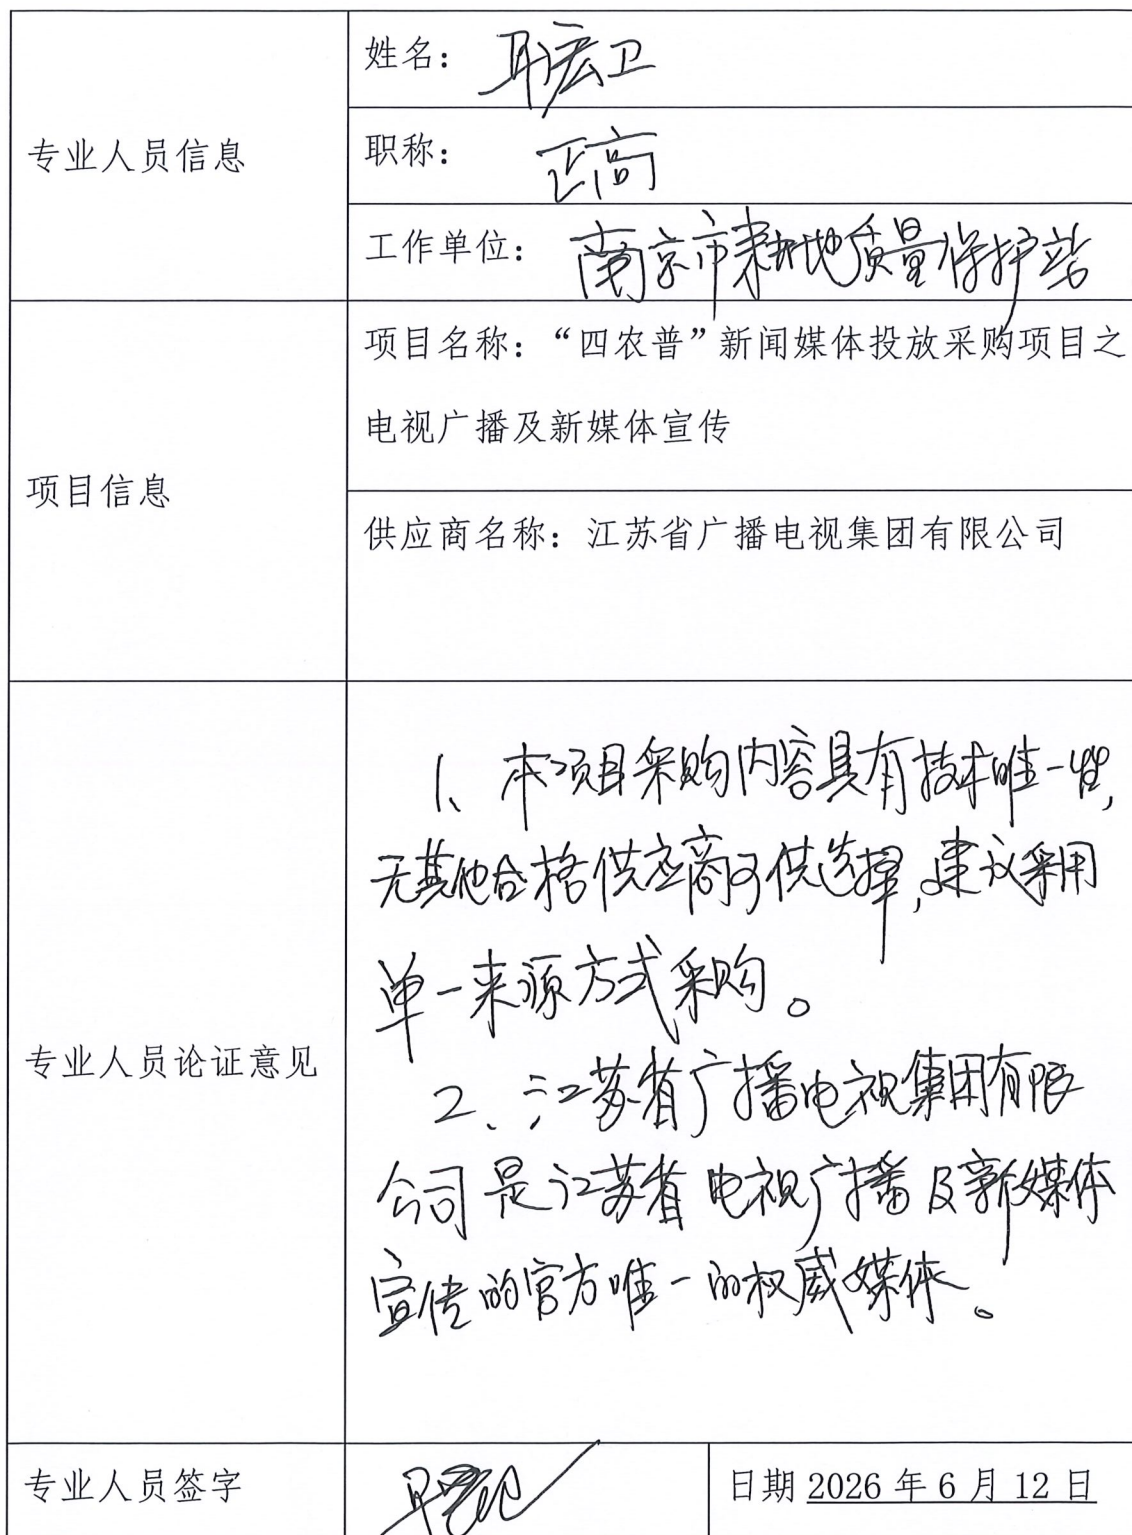 专业人员信息
姓名：宏卫
职称：正高
工作单位：南京市耕地质量保护站
项目信息
项目名称：“四农普”新闻媒体投放采购项目之
电视广播及新媒体宣传
供应商名称：江苏省广播电视集团有限公司
专业人员论证意见
1、本项目采购内容具有技术唯一性,
无其他合格供应商可供选择,建议采用
单一来源方式采购。
2、江苏省广播电视集团有限
公司是江苏省电视广播及新媒体
宣传的官方唯一的权威媒体。
专业人员签字
日期 2026 年 6 月 12 日